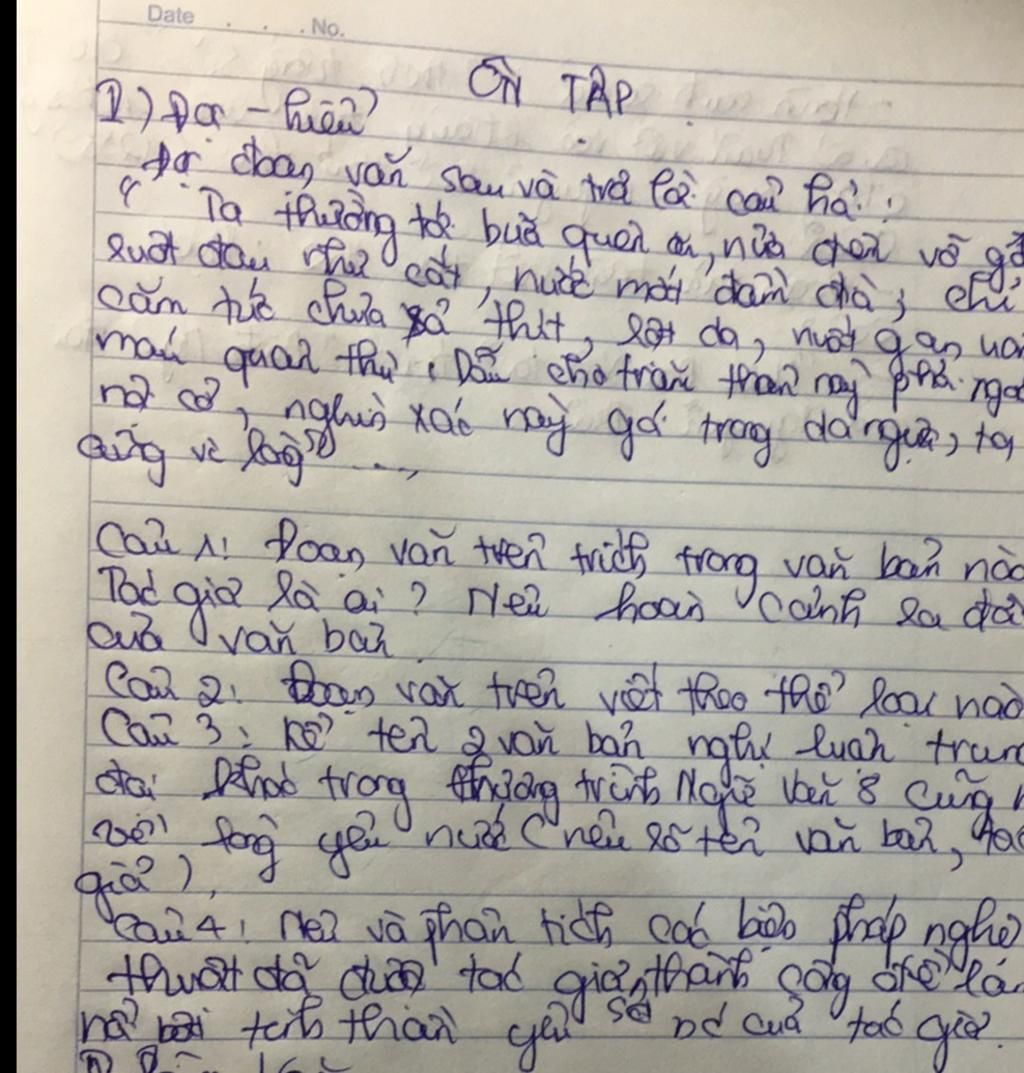 Date . . . No.
ÔN TẬP
I) Đọc - hiểu
Đọc đoạn văn sau và trả lời câu hỏi:
" Ta thường tới bữa quên ăn, nửa đêm vỗ gố
ruột đau như cắt, nước mắt đầm đìa, chỉ
căm tức chưa xả thịt, lột da, nuốt gan uố
máu quân thù. Dẫu cho trăm thân này phải ngo
nội cỏ, nghìn xác này gói trong da ngựa, ta
cũng vui lòng" ...,
Câu 1: Đoạn văn trên trích trong văn bản nào
Tác giả là ai? Nêu hoàn cảnh ra đời
của văn bản
Câu 2: Đoạn văn trên viết theo thể loại nào
Câu 3: Kể tên 2 văn bản nghị luận trun
đại khác trong chương trình Ngữ văn 8 cũng n
với lòng yêu nước (nêu rõ tên văn bản, tác
giả).
Câu 4: Nêu và phân tích các biện pháp nghệ
thuật đã được tác giả thành công để là
nổi bật tinh thần yêu của tác giả.